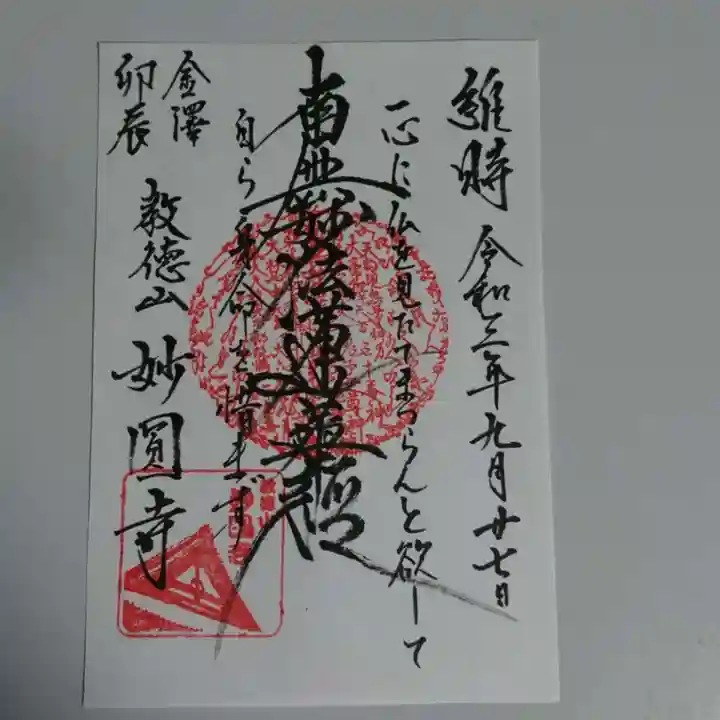 維時 令和三年九月廿七日
一心に仏を見たてまつらんと欲して
南無妙法蓮華経
自ら身命を惜まず
金澤
卯辰
教徳山 妙圓寺